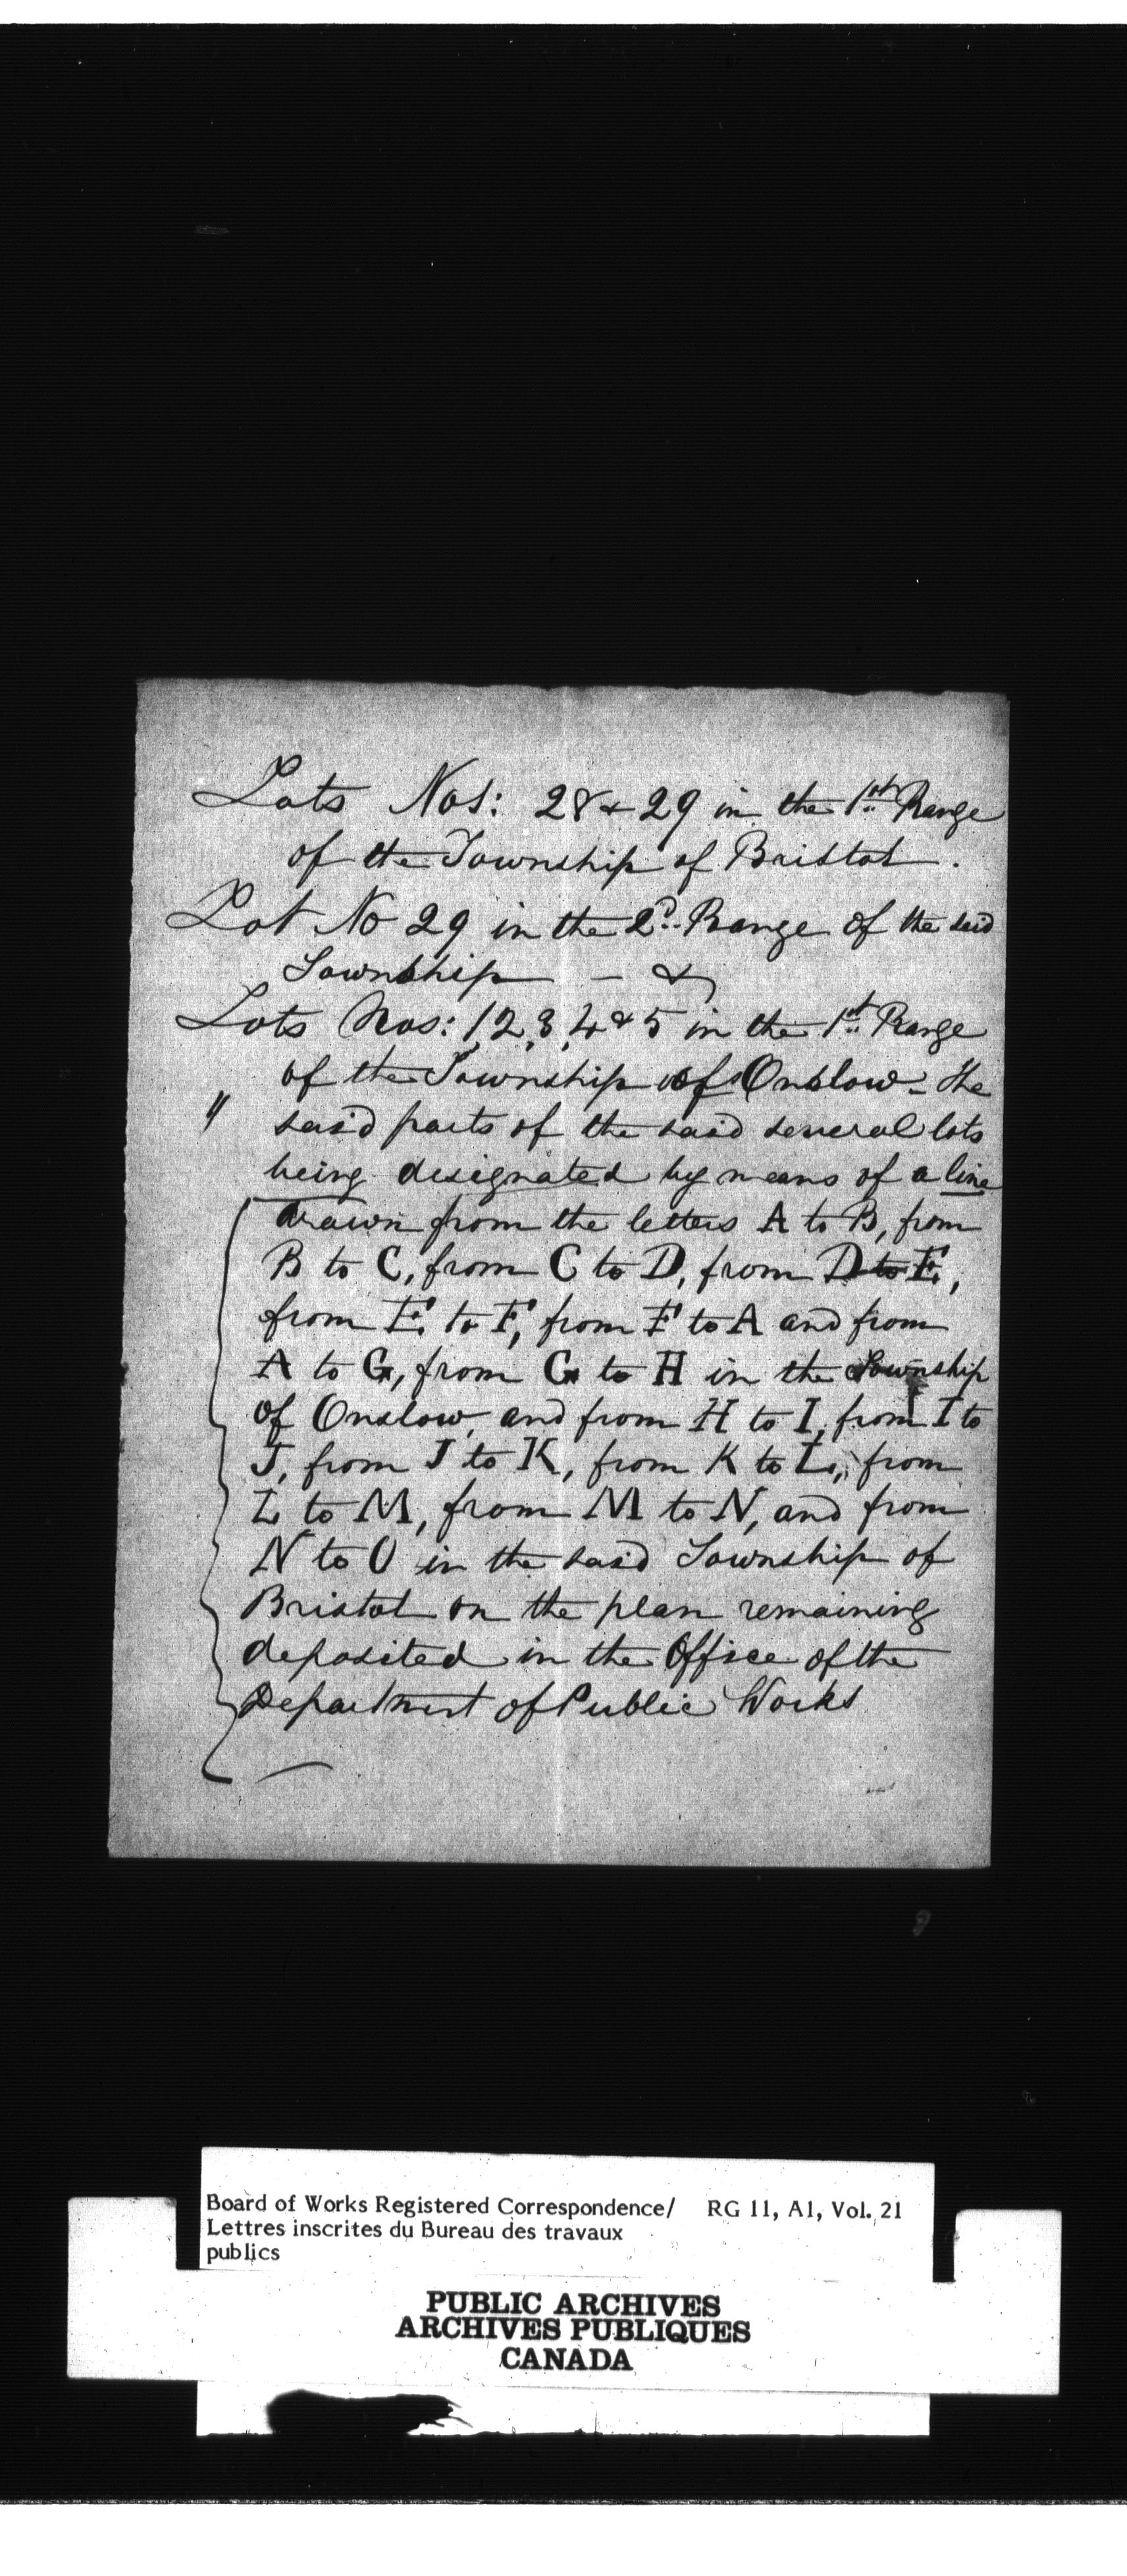 Lots Nos: 28 & 29 in the 1st Range
of the Township of Bristol.
Lot No 29 in the 2d Range of the said
Township — &
Lots Nos: 1, 2, 3, 4 & 5 in the 1st Range
of the Township of Onslow - the
" said parts of the said several lots
being designated by means of a line
drawn from the letters A to B, from
B to C, from C to D, from D to E,
from E to F, from F to A and from
A to G, from G to H in the Township
of Onslow, and from H to I, from I to
J, from J to K, from K to L, from
L to M, from M to N, and from
N to O in the said Township of
Bristol on the plan remaining
deposited in the Office of the
Department of Public Works
Board of Works Registered Correspondence/ RG 11, A1, Vol. 21
Lettres inscrites du Bureau des travaux
publics
PUBLIC ARCHIVES
ARCHIVES PUBLIQUES
CANADA